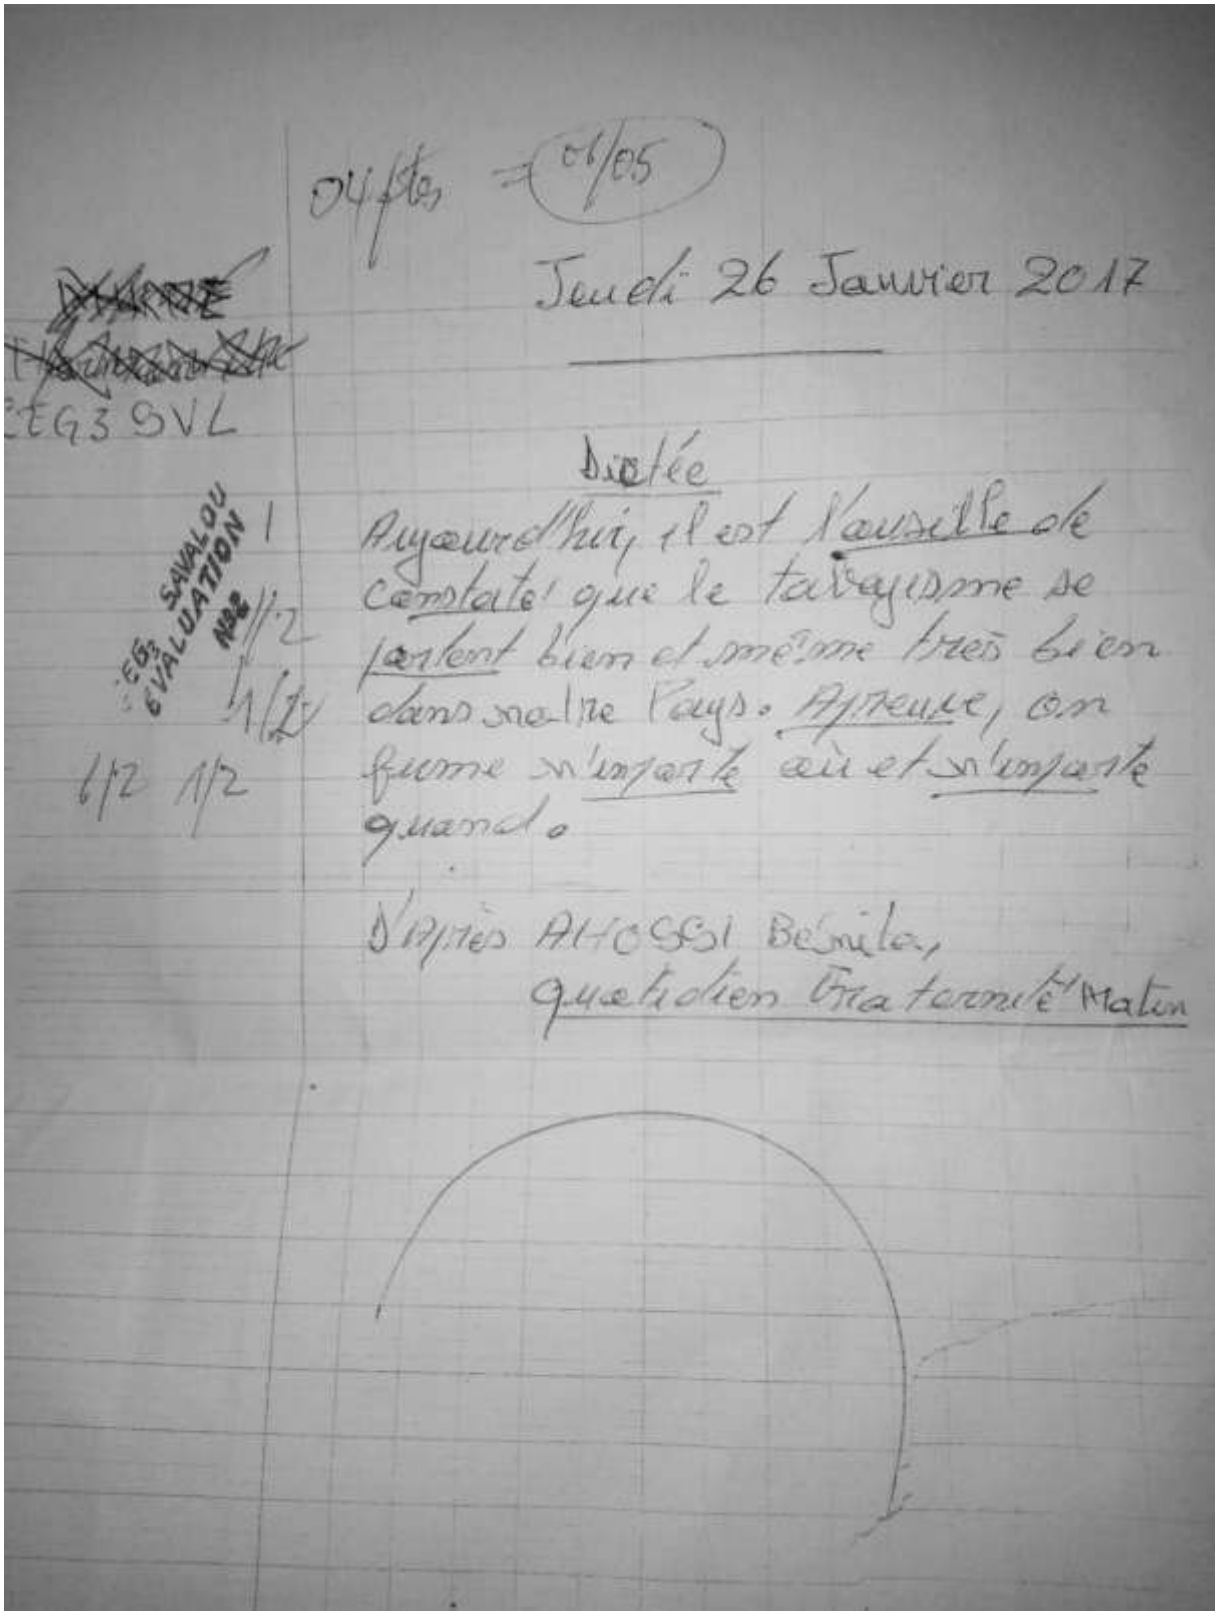 04 ftes = 01/05
Jeudi 26 Janvier 2017
CEG3 SVL
Dictée
SAVALOU
CEG3
EVALUATION
N°2
1
Aujourd'hui, il est l'ausille de
1/2
constaté que le tabagisme se
partent bien et même très bien
1/2
dans notre Pays. Apreuve, on
1/2 1/2
fume n'imparte où et n'imparte
quand.
D'Après AHOSSI Bénita,
quotidien Fraternité Matin